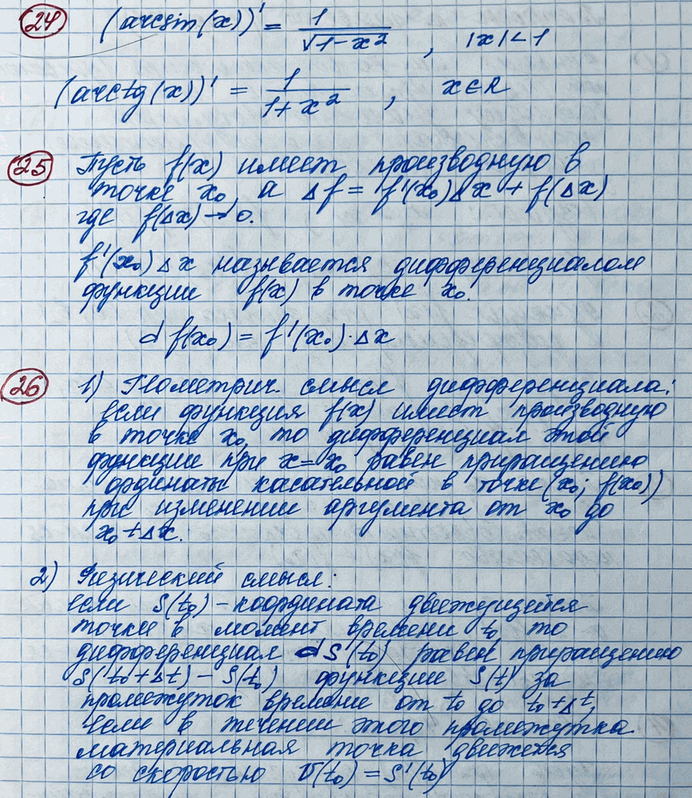 24 (arcsin(x))' = 1/√(1-x²) , |x|<1
(arctg(x))' = 1/(1+x²) , x∈R
25 Пусть f(x) имеет производную в
точке x₀, а Δf = f'(x₀)Δx + f(Δx)
где f(Δx)→0.
f'(x₀)Δx называется дифференциалом
функции f(x) в точке x₀.
d f(x₀) = f'(x₀)·Δx
26 1) Геометрич. смысл дифференциала:
если функция f(x) имеет производную
в точке x₀, то дифференциал этой
функции при x=x₀ равен приращению
ординаты касательной в точке (x₀; f(x₀))
при изменении аргумента от x₀ до
x₀+Δx.
2) Физический смысл:
если S(t₀) - координата движущейся
точки в момент времени t₀, то
дифференциал dS'(t₀) равен приращению
S(t₀+Δt) - S(t₀) функции S(t) за
промежуток времени от t₀ до t₀+Δt,
если в течении этого промежутка
материальная точка движется
со скоростью v(t₀) = S'(t₀)